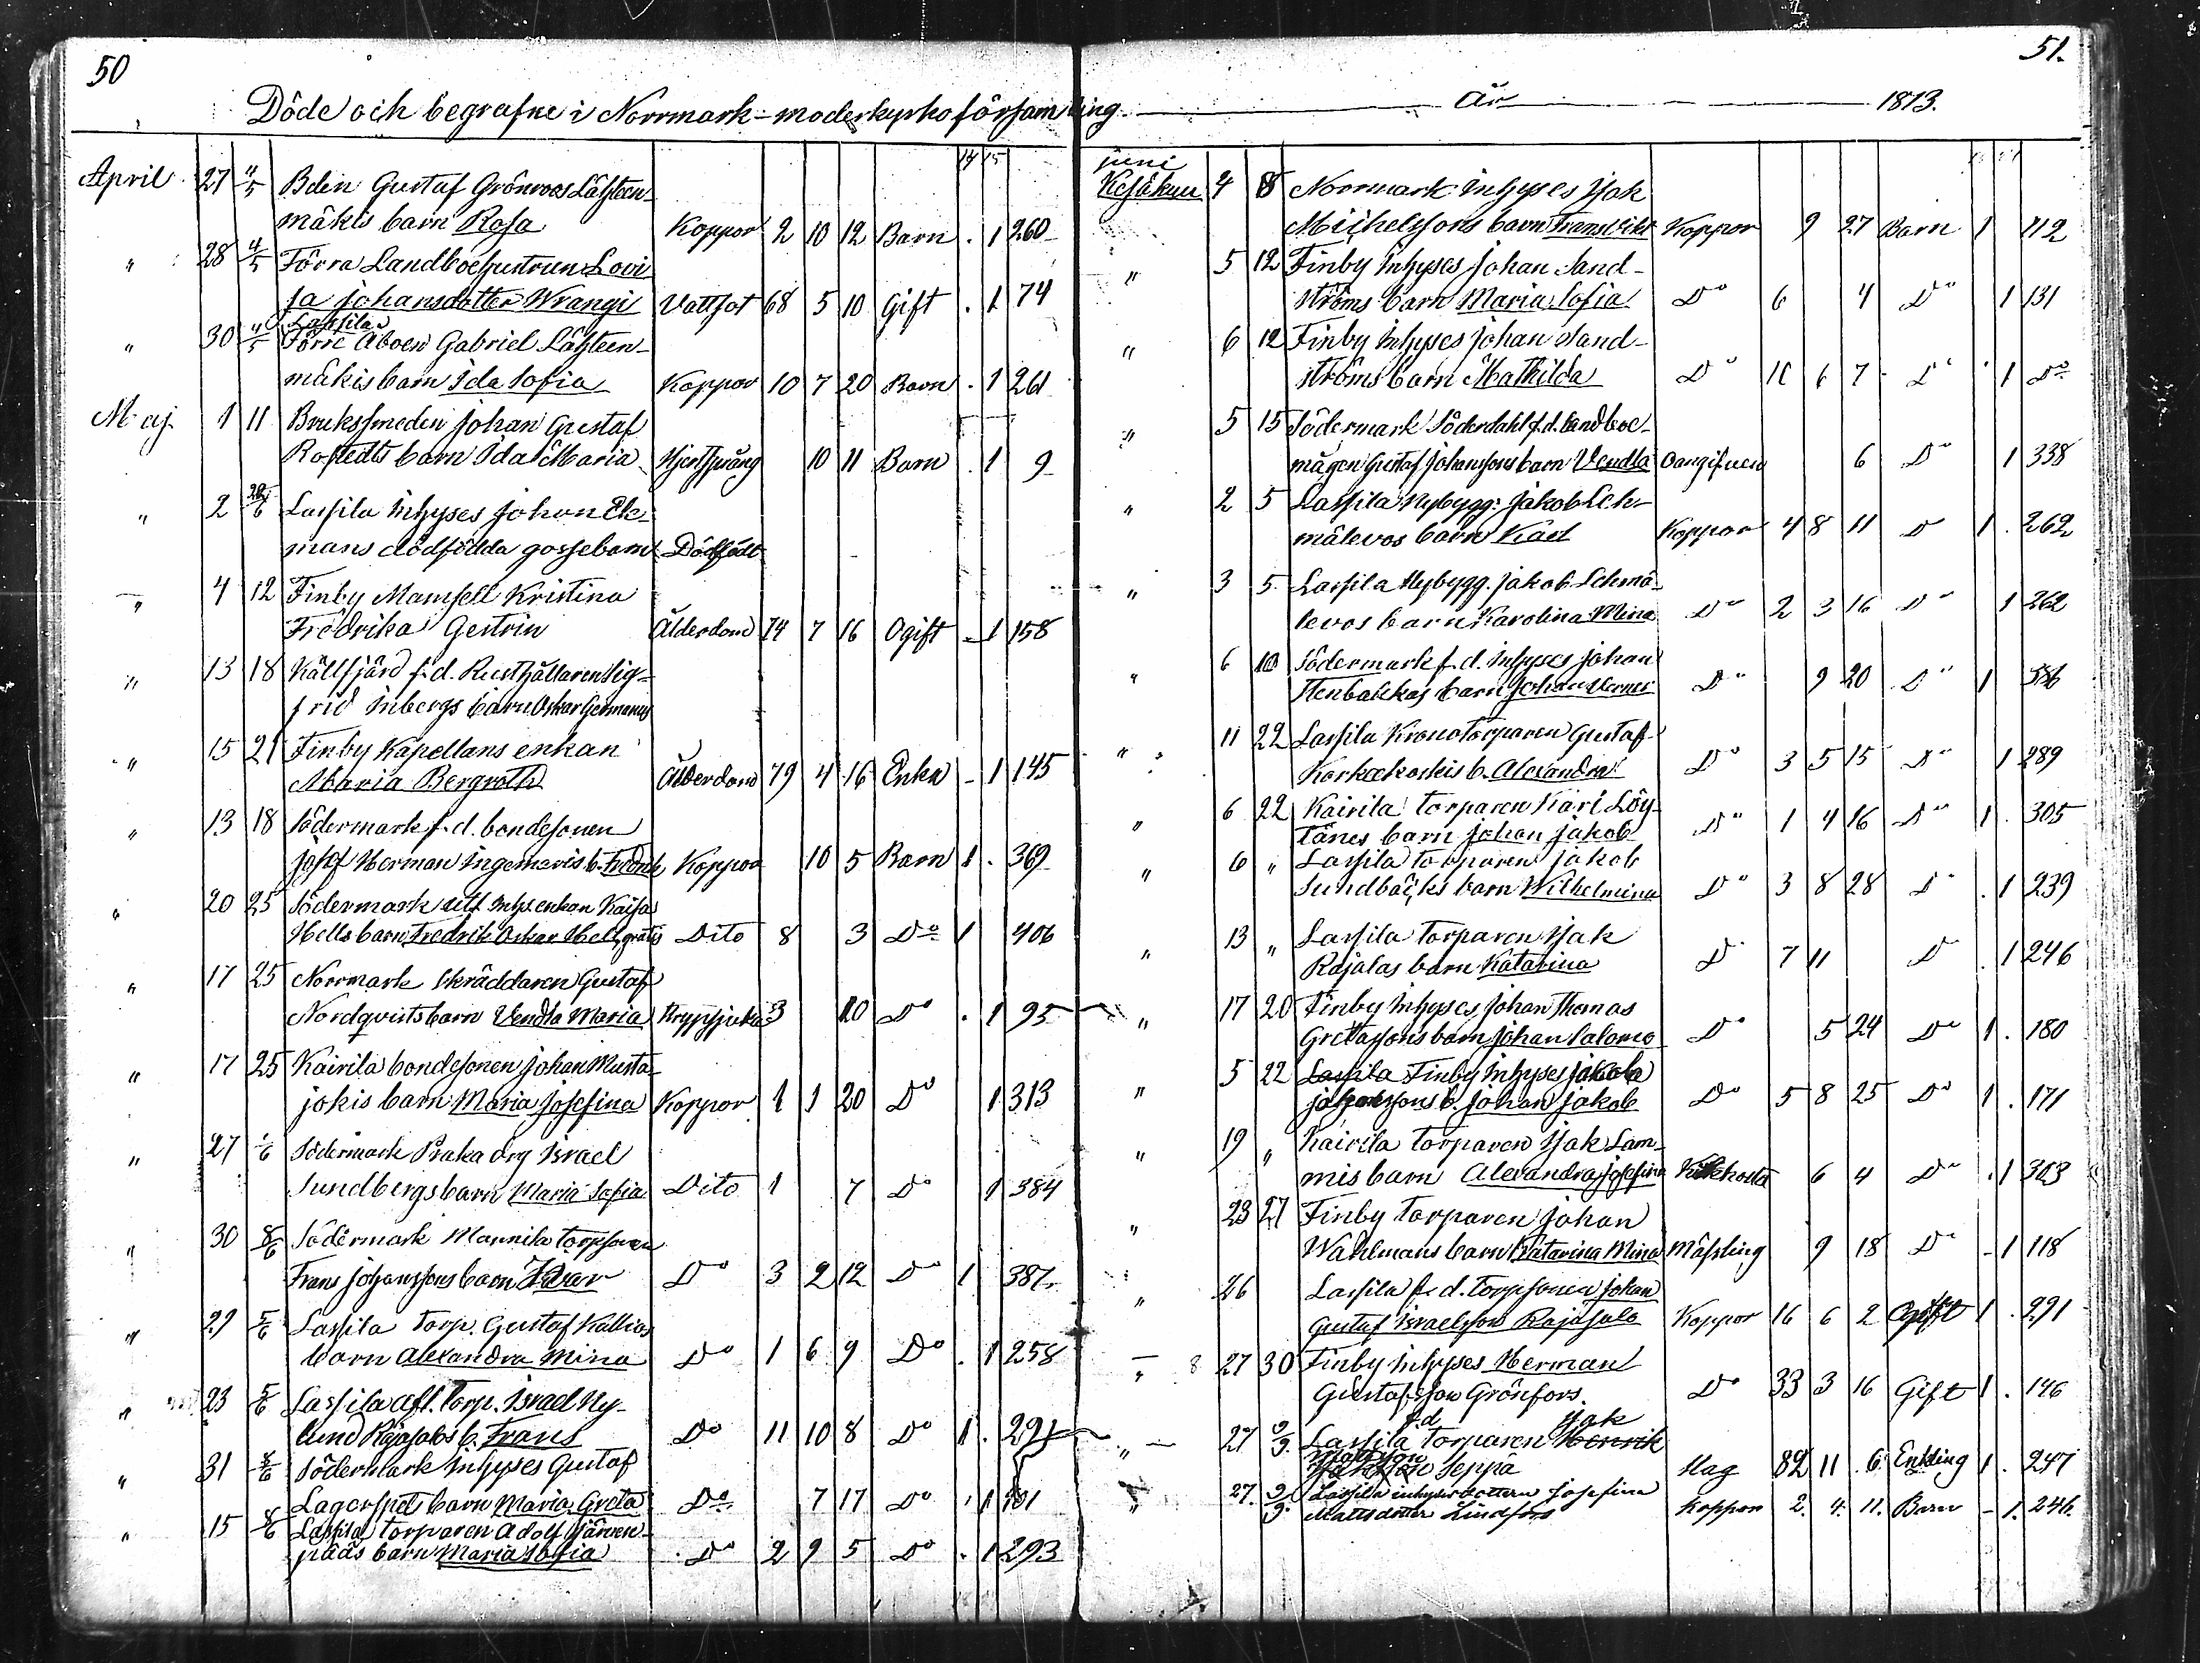 50
Döde och begrafne i Norrmark-moderkyrkoförsamling
April 27 4/5 Bdin Gustaf Grönroos Lähteen-
mäkis barn Rosa Koppor 2 10 12 Barn . 1 260
" 28 4/5 Förra Landboehustrun Lovi
sa Johansdotter Wrangi Vattsot 68 5 10 Gift . 1 74
Lassila
" 30 4/5 Förre Åboen Gabriel Lähteen-
mäkis barn Ida Sofia Koppor 10 7 20 Barn . 1 261
Maj 1 11 Bruksfmeden Johan Gustaf
Rostedts barn Ida Maria Hjertsprång 10 11 Barn . 1 9
" 2 Lassila Inhyses Johan Ek-
mans dödfödda gossebarn Dödfödt
" 4 12 Finby Mamsell Kristina
Fredrika Gestrin Ålderdom 74 7 16 Ogift - 1 158
" 13 18 Källfjärd f.d. Rusthållaren Sig-
frid Inbergs barn Oskar Germanus
" 15 21 Finby Kapellans enkan
Maria Bergroth Ålderdom 79 4 16 Enka - 1 145
" 13 18 Södermark f.d. bondesonen
Josef Herman Ingemaris b. Fredrik Koppor 10 5 Barn 1 . 369
" 20 25 Södermark Inhs. enkan Kaisa
Hells barn Fredrik Oskar Hell, gratis Dito 8 3 Do 1 406
" 17 25 Norrmark Skräddaren Gustaf
Nordqvists barn Vendla Maria 3 10 Do . 1 95
" 17 25 Kairila bondesonen Johan Musta-
jokis barn Maria Josefina Koppor 1 1 20 Do 1 313
" 27 1/6 Södermark Israel
Sundbergs barn Maria Sofia Dito 1 7 Do 1 384
" 30 8/6 Södermark Mannila torpsonen
Frans Johanssons barn Do 3 2 12 Do 1 387
" 29 5/6 Lassila Torp. Gustaf Kallios
barn Alexandra Mina Do 1 6 9 Do . 1 258
" 23 5/6 Lassila afl. Torp. Israel Ny-
lund Rajasalos b. Frans Do 11 10 8 Do 1 . 291
" 31 Södermark Inhyses Gustaf
barn Maria Greta Do 7 17 Do 1
" 15 8/6 Lassila torparen Adolf Järven-
pääs barn Maria Sofia Do 2 9 5 Do . 1 293
51.
År 1873.
Juni
Kesäkuu 4 8 Norrmark Inhyses Isak
Michelssons barn Frans Vikt Koppor 9 27 Barn 1 112
" 5 12 Finby Inhyses Johan Sand-
ströms barn Maria Sofia Do 6 4 Do 1 131
" 6 12 Finby Inhyses Johan Sand-
ströms barn Mathilda Do 6 7 Do 1 Do
" 5 15 Södermark Söderdahl f.d. landboe-
mågen Gustaf Johanssons barn Vendla Oangifven 6 Do 1 338
" 2 5 Lassila Nybygg: Jakob Leh-
mälevos barn Kael Koppor 4 8 11 D 1 . 262
" 3 5 Lassila Nybygg. Jakob Lehmä-
levos barn Karolina Mina Do 2 3 16 Do 1 262
" 6 Södermark f.d. Inhyses Johan
Stenbakkas barn Johan Verner Do 9 20 Do 1
" 11 22 Lassila Kronotorparen Gustaf
Korkekoskis b. Alexandra Do 3 5 15 Do 1 289
" 6 22 Kairila torparen Karl Löy-
tänes barn Johan Jakob Do 1 4 16 Do 1 . 305
" 6 " Lassila torparen Jakob
Sundbäcks barn Wilhelmina Do 3 8 28 Do . 1 239
" 13 " Lassila torparen Isak
Rajalas barn Katarina D 7 11 D . 1 246
" 17 20 Finby Inhyses Johan Thomas
Gretassons barn Johan Salomo Do 5 24 Do 1 . 180
" 5 22 Lassila Finby Inhyses Jakob
Johanssons b. Johan Jakob Do 5 8 25 Do 1 . 171
" 19 " Kairila torparen Isak Lam-
mis barn Alexandra Josefina Kikhosta 6 4 Do . 1 303
" 23 27 Finby torparen Johan
Wahlmans barn Katarina Mina Mässling 9 18 Do - 1 118
" 26 Lassila f.d. torpsonen Johan
Gustaf Israelsson Rajasalo Koppor 16 6 2 Ogift 1 . 291
" 27 30 Finby Inhyses Herman
Gustafsson Grönfors. Do 33 3 16 Gift 1 . 146
f.d. Isak
" 27 Lassila torparen Henrik
Seppä Slag 82 11 6 Enkling 1 . 247
" 27. Lassila inhysesdottern Josefina
Mattsdotter Lindfors Koppor 2. 4. 11. Barn - 1. 246.